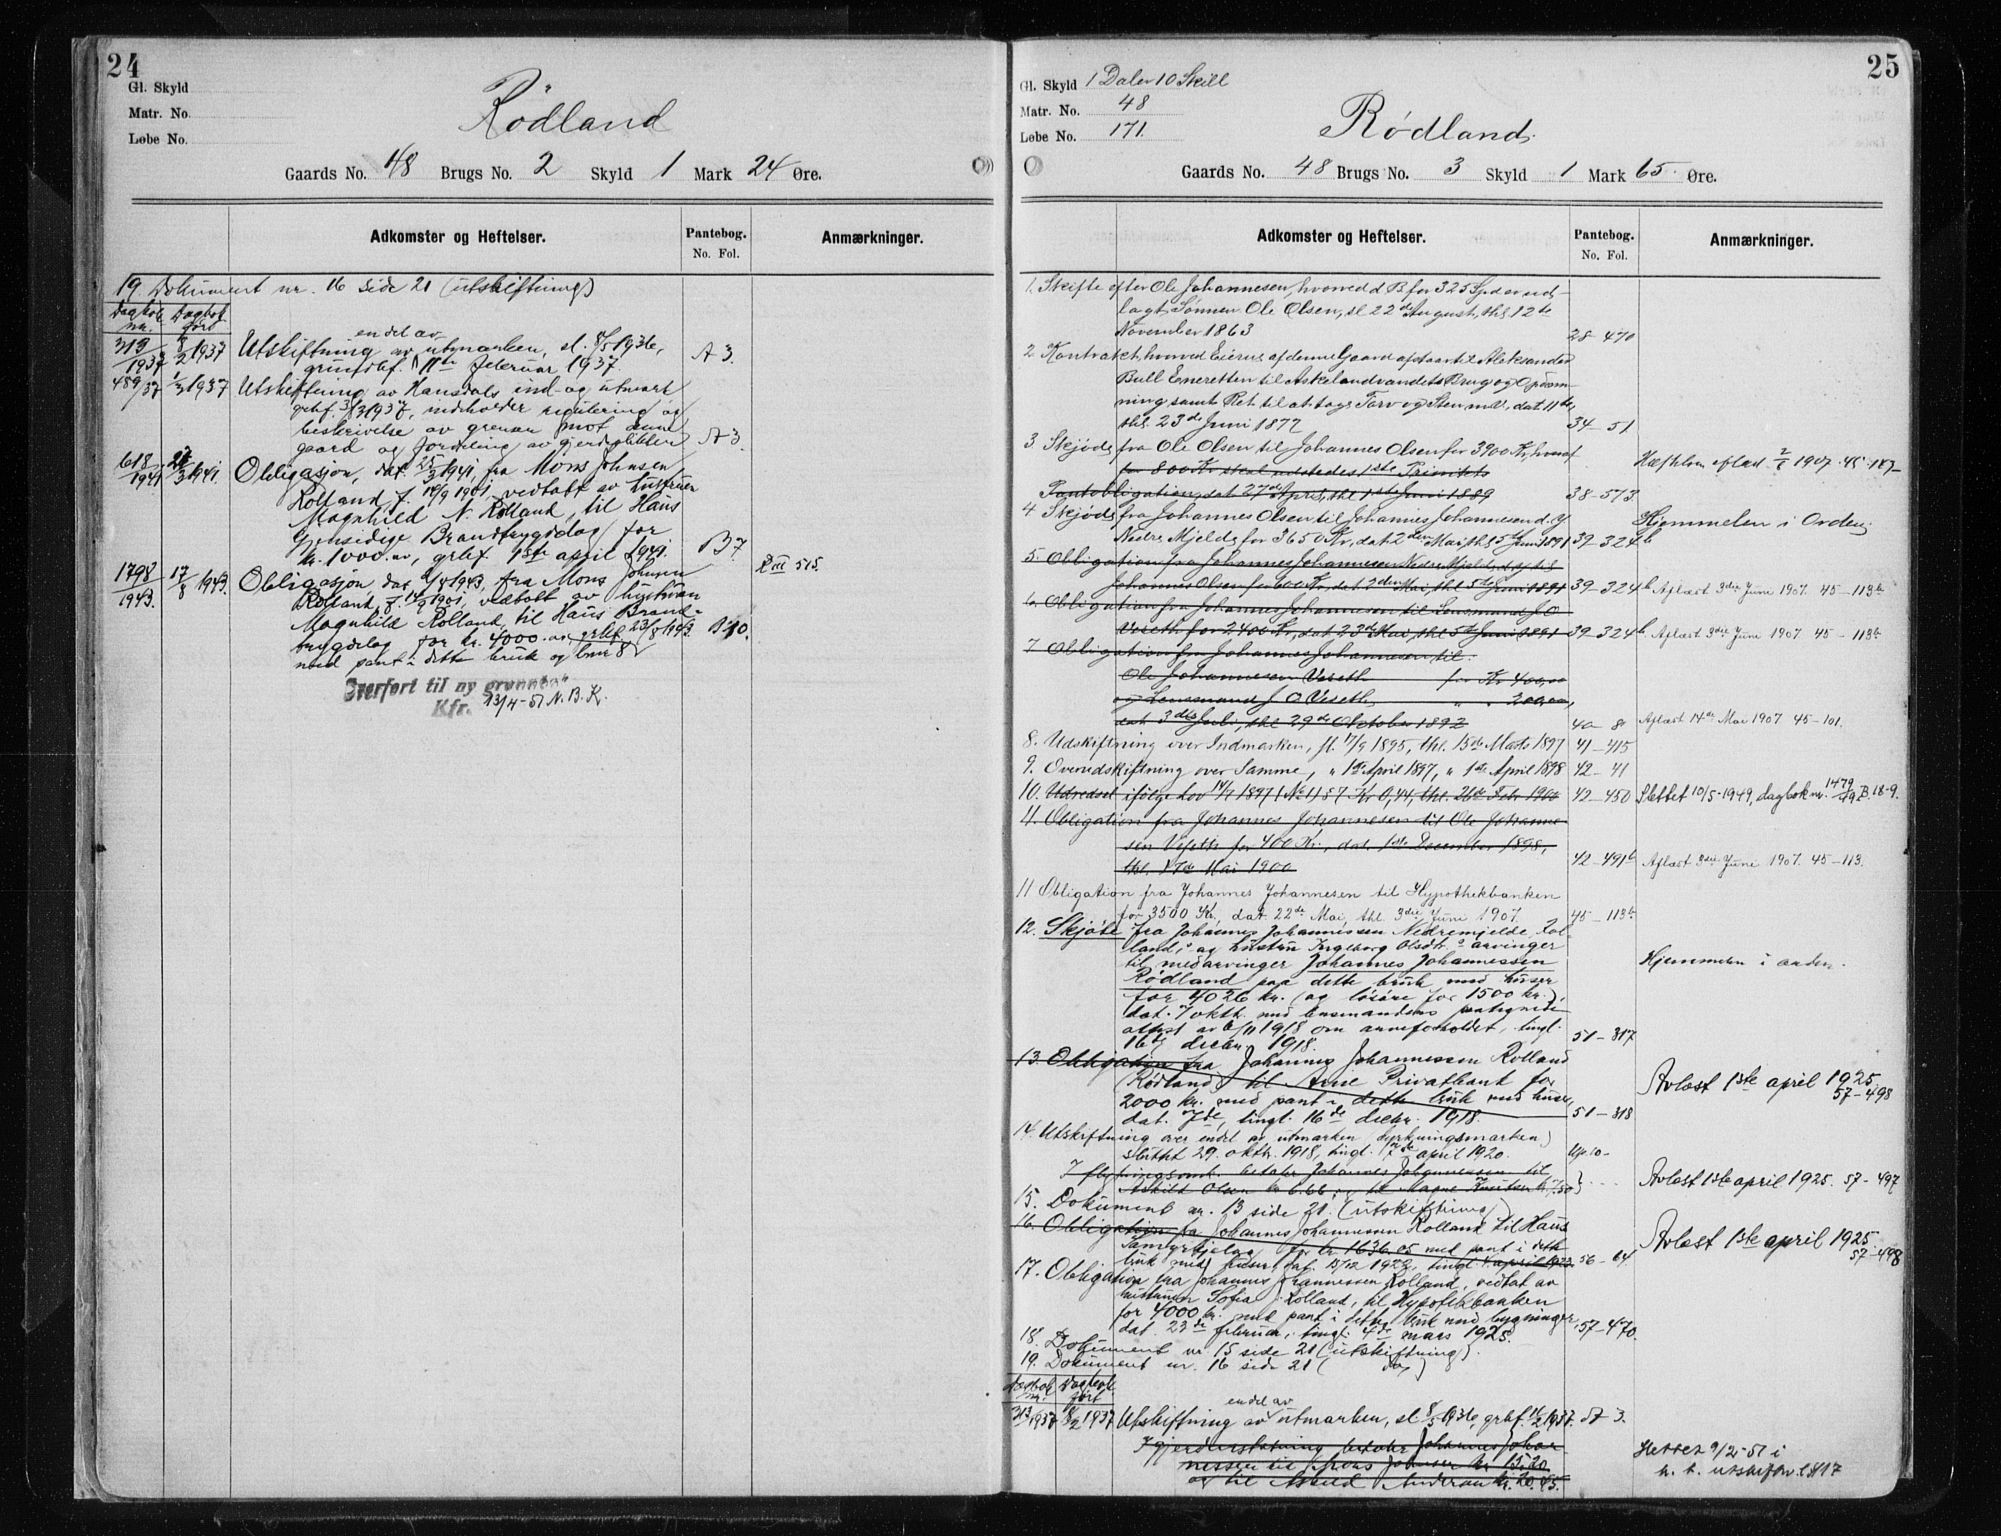 24
Gl. Skyld
Matr. No.
Løbe No.
Rödland
Gaards No. 48 Brugs No. 2 Skyld 1 Mark 24 Øre.
Adkomster og Heftelser.
Pantebog.
No. Fol.
Anmærkninger.
19. Dokument nr. 16 side 21 (utskiftning)
Dagbok nr. Dagbok ført
313/1937 1937 Utskiftning av en del av utmarken, sl. 1936,
grunnbf. 11te februar 1937. A 3.
489/37 1937 Utskiftning av Hansdals ind- og utmark
grbf. 3/3 1937, indeholder regulering og
beskrivelse av grensen mot denne
gaard og fordeling av gjerdeplikten A 3.
618/1941 1941. Obligasjon, dat. 25/3 1941, fra Mons Johnsen
Rolland, f. 1901, vedtatt av hustruen
Magnhild N. Rolland, til Haus
Gjensidige Brandtrygdelag for
kr. 1000.00, grbf. 1ste april 1941. B 7.
1798/1943. 17/8 1943. Obligasjon dat. 1943, fra Mons Johnsen
Rolland, f. 1901, vedtatt av hustruen
Magnhild Rolland, til Haus Brand-
trygdelag for kr. 4000.00, grbf. 23/8 1943 B 10.
med pant i dette bruk og bnr 8
515.
Overført til ny grunnbok
Kfr. 13/4-51 N.B.K.
25
Gl. Skyld 1 Daler 10 Skill
Matr. No. 48
Løbe No. 171.
Rødland.
Gaards No. 48 Brugs No. 3 Skyld 1 Mark 65 Øre.
Adkomster og Heftelser.
Pantebog.
No. Fol.
Anmærkninger.
1. Skifte efter Ole Johannesen, hvorved d B for 325 Spd er ud-
lagt Sönnen Ole Olsen, sl 22de August, thl 12te
November 1863 28-470
2 Kontrakt hvorved Eierne af denne Gaard afstaar til Aleksander
Bull Eneretten til Askelandvandets Brug og Opdæm-
ning samt Ret til at tage Torv og Sten m.v., dat 11te,
thl. 23de Juni 1877 34-51
3 Skjøde fra Ole Olsen til Johannes Olsen for 3900 Kr, hvoraf
for 800 Kr skal udstedes 1ste Prioritets
Pantobligation, dat 27de April, thl 1ste Juni 1889 38-573
Hæftelsen aflæst 1907 45-187-
4 Skjøde fra Johannes Olsen til Johannes Johannesen d. y
Nedre Mjelde for 3650 Kr, dat 2den Mai, thl 5te Juni 1891 39-324b
Hjemmelen i Orden.
5. Obligation fra Johannes Johannesen Nedre Mjelde, d.y til
Johannes Olsen for 600 Kr, dat 2den Mai, thl 5te Juni 1891 39-324b Aflæst 3die June 1907. 45-113b
6. Obligation fra Johannes Johannesen til Lensmand J O
Veseth for 2400 Kr, dat 23de Mai, thl 5te Juni 1891 39-324b. Aflæst 3die June 1907. 45-113b
7 Obligation fra Johannes Johannesen til:
Ole Johannesen Veseth for Kr 400,00
og Lensmand J O Veseth " " 200,00,
dat 3die Juli, thl 29de Oktober 1892 40-8b Aflæst 14de Mai 1907 45-101.
8. Udskiftning over Indmarken, sl. 17/9 1895, thl. 15de Marts 1897 41-415
9. Overudskiftning over Samme, " 1ste April 1897, " 1ste April 1898 42-41
10. Udredsel ifølge Lov 1897 (No 1) 57 Kr 0,44, thl. 26de Febr 1900 42-450 Slettet 10/5-1949, dagbok nr. 1479/49 B. 18-9.
11. Obligation fra Johannes Johannesen til Ole Johanne-
sen Veseth for 400 Kr., dat. 1ste December 1898,
thl. 17de Mai 1900 42-491b Aflæst 3die June 1907. 45-113.
11 Obligation fra Johannes Johannesen til Hypothekbanken
for 3500 Kr., dat 22de Mai, thl. 3die June 1907. 45-113b
12. Skjøte fra Johannes Johannessen Nedremjelde, Rol-
land, og hustru Ingeborg Olsdtr.s arvinger
til medarvinger Johannes Johannessen
Rødland paa dette bruk med huser
for 4026 kr. (og løsøre for 1500 kr.),
dat. 7 oktbr. med lensmandens paategnede
attest av 6/11 1918 om arveforholdet, tingl.
16de decbr. 1918. 51-317
Hjemmelen i orden.
13. Obligation fra Johannes Johannessen Rolland
(Rødland) til Arne Privatbank for
2000 kr. med pant i dette bruk med huser,
dat. 7de, tingl. 16de decbr. 1918. 51-318
Avlæst 1ste april 1925
57-498
14. Utskiftning over endel av utmarken (dyrkningsmarken)
sluttet 29. oktbr. 1918, tingl. 17de april 1920. Up 10-
I flytningsomk. betaler Johannes Johannessen til
Askild Olsen kr. 6.66, til Magne Knutsen kr. 7.50
Avlæst 1ste april 1925. 57-497
15. Dokument nr. 13 side 21. (utskiftning)
16. Obligation fra Johannes Johannessen Rolland til Haus
for kr. 1636.05 med pant i dette
bruk med huser, dat. 1922, tingl. april 1923 56-64
Avlæst 1ste april 1925
57-498
17. Obligation fra Johannes Johannessen Rolland, vedtat av
hustruen Sofia Rolland, til Hypotekbanken
for 4000 kr. med pant i dette bruk med bygninger,
dat. 23de februar, tingl. 4de mars 1925. 57-470.
18. Dokument nr. 15 side 21 (utskiftning).
19. Dokument nr. 16 side 21 ( do )
Dagbok nr. Dagbok ført
313/1937 1937 Utskiftning av en del av utmarken, sl. 1936, grbf. 11/2 1937. A 3.
I gjerdeerstatning betaler Johannes Johan-
nessen til Mons Johnsen kr. 15.20
og til Askild Andersen kr. 20.45.
Slettet 9/2-51 i
h. t. utskiftn.l. § 117